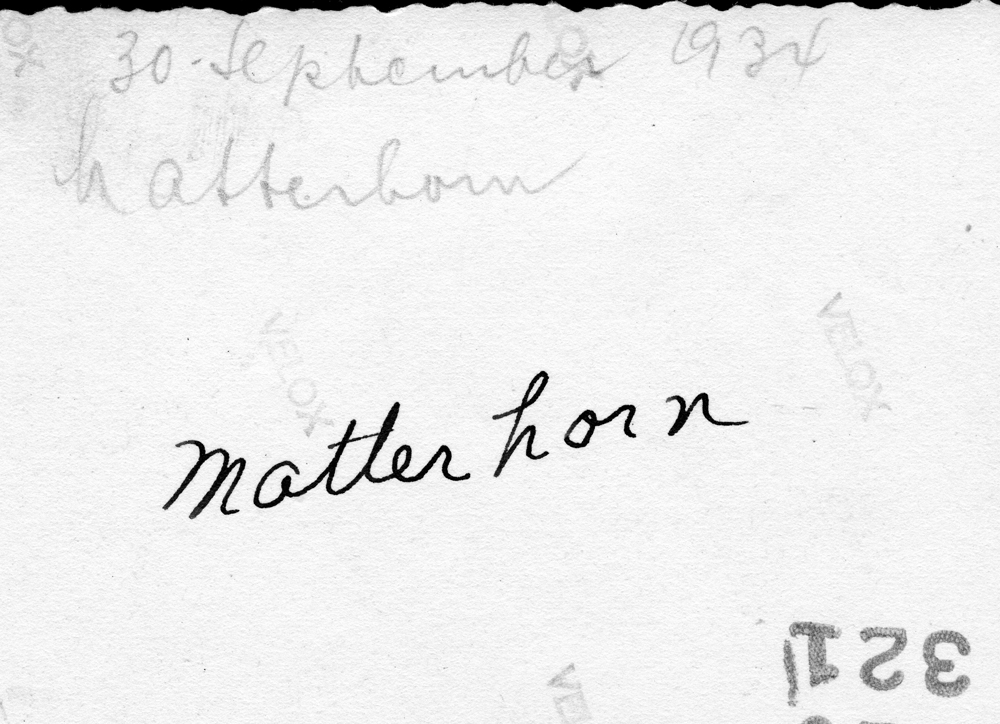 30 - September 1934
Matterhorn
VELOX
VELOX
Matterhorn
VE
321